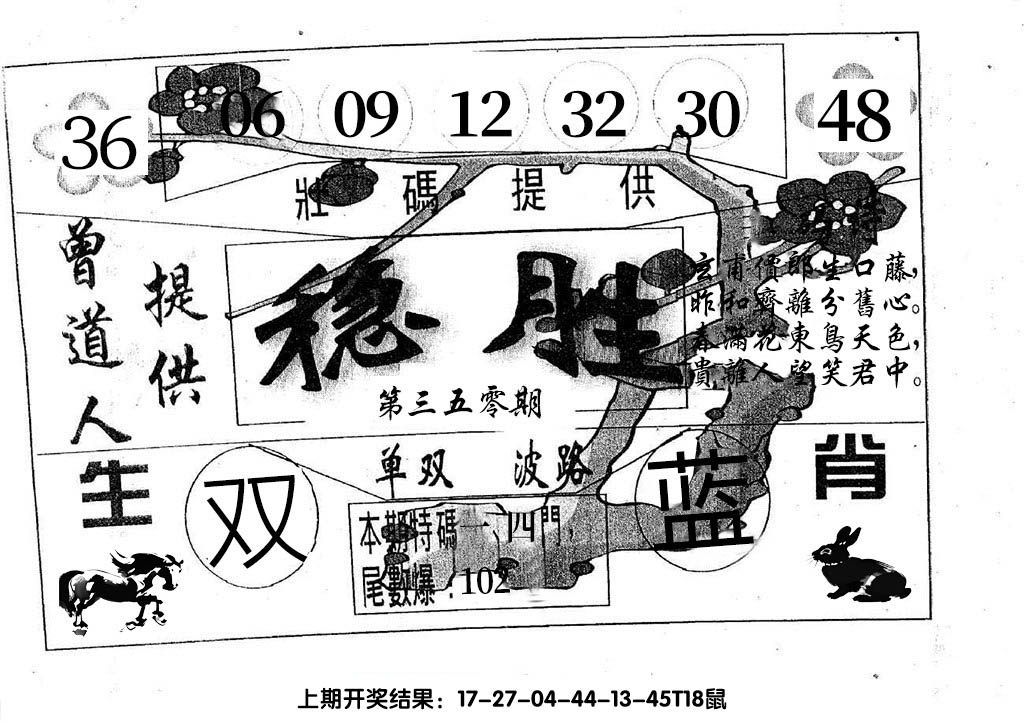 36 06 09 12 32 30 48
壯碼提供
特
曾道人
提供
稳胜
第三五零期
玄甫償郎坐口藤，
昨和齊離分舊心。
春滿花東鳥天色，
貴離人望笑君中。
单双 波路
生肖
双
蓝
本期特碼一、四門，
尾數爆：102
上期开奖结果：17-27-04-44-13-45T18鼠